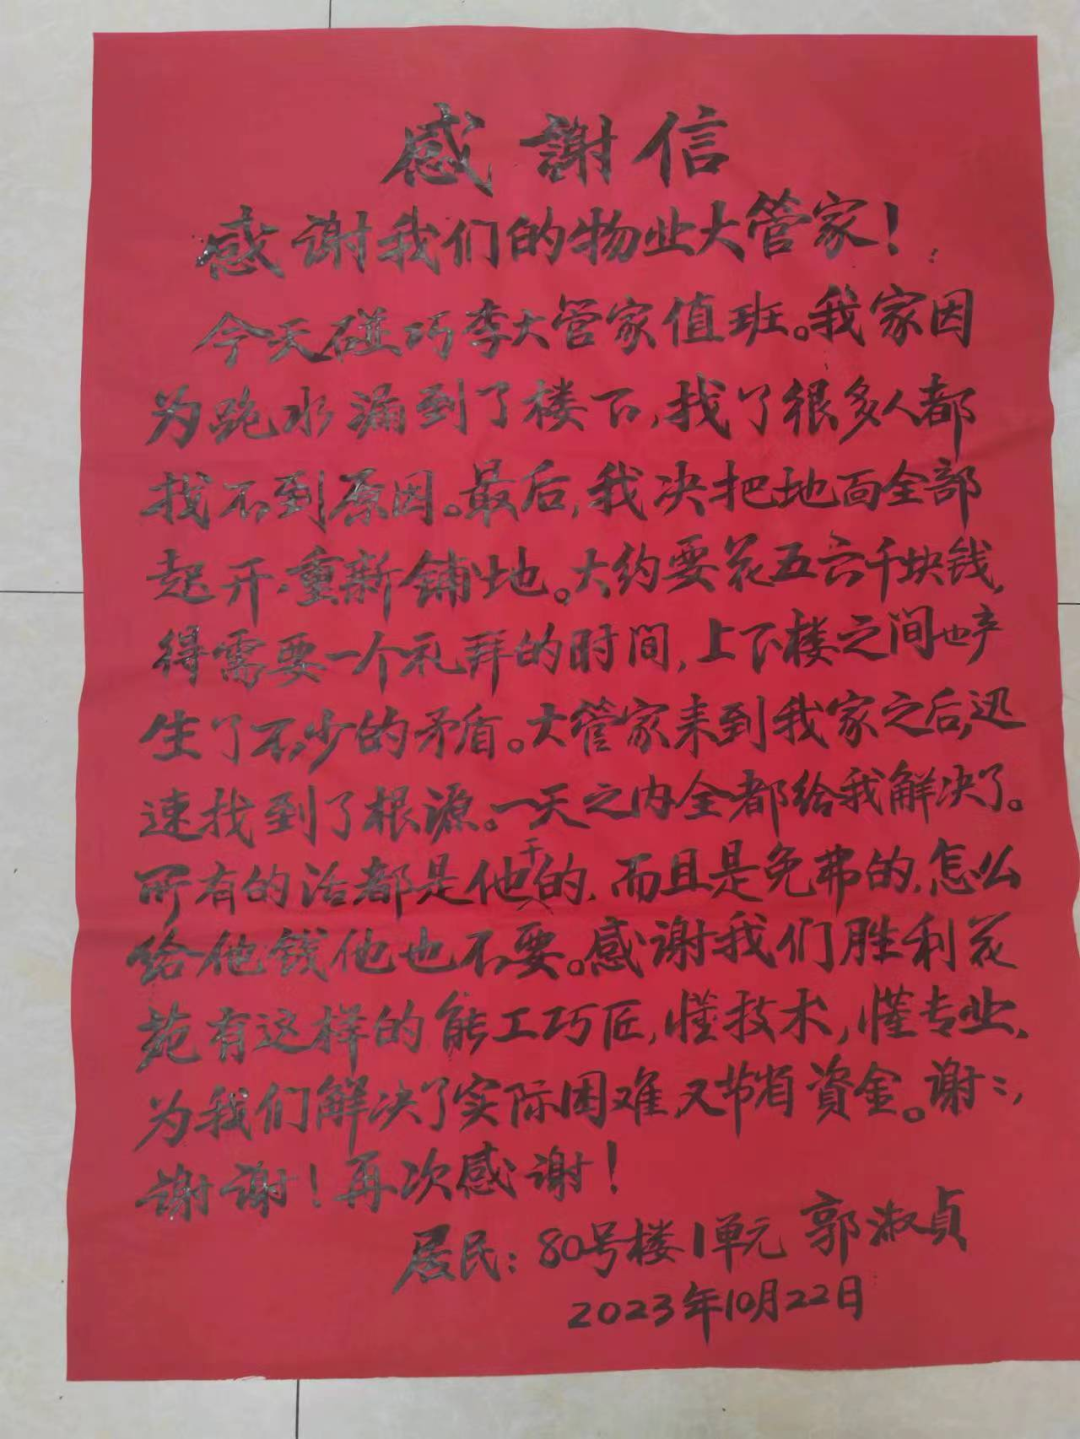 感謝信
感谢我们的物业大管家！
今天碰巧李大管家值班。我家因
为跑水漏到了楼下,找了很多人都
找不到原因。最后,我决把地面全部
起开.重新铺地。大约要花五六千块钱,
得需要一个礼拜的时间,上下楼之间也产
生了不少的矛盾。大管家来到我家之后,迅
速找到了根源。一天之内全都给我解决了。
所有的活都是他干的,而且是免费的,怎么
给他钱他也不要。感谢我们胜利花
苑有这样的能工巧匠,懂技术,懂专业,
为我们解决了实际困难,又节省資金。谢:,
谢谢!再次感谢!
居民:80号楼1单元 郭淑贞
2023年10月22日